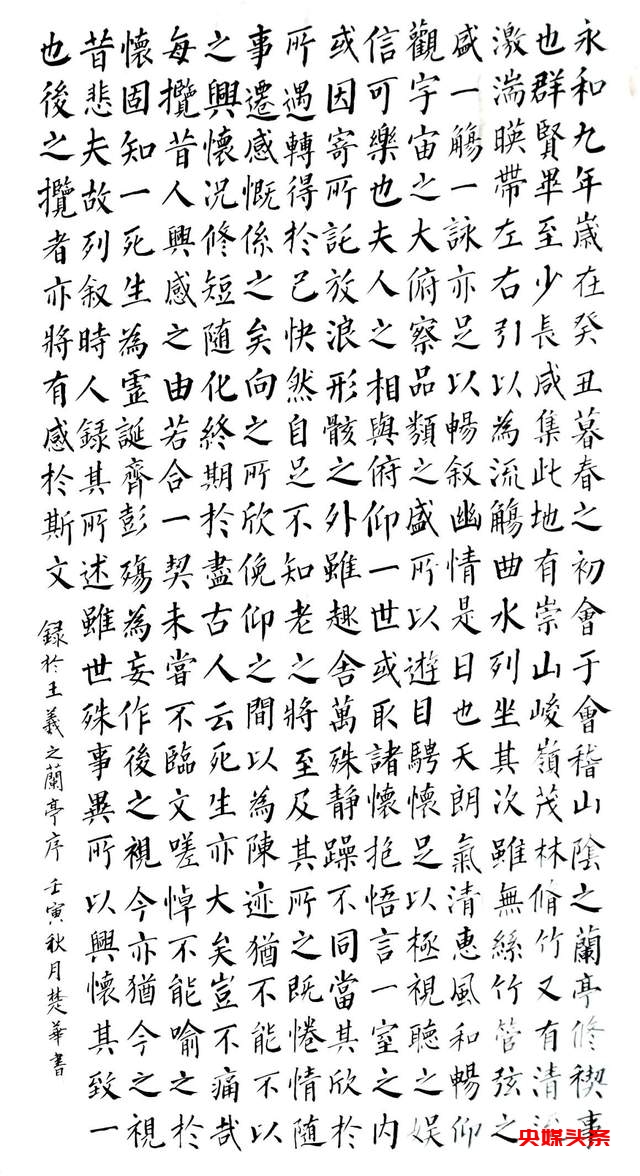 永和九年歲在癸丑暮春之初會于會稽山陰之蘭亭修禊事
也群賢畢至少長咸集此地有崇山峻嶺茂林脩竹又有清流
激湍暎帶左右引以為流觴曲水列坐其次雖無絲竹管弦之
盛一觴一詠亦足以暢叙幽情是日也天朗氣清惠風和暢仰
觀宇宙之大俯察品類之盛所以遊目騁懷足以極視聽之娛
信可樂也夫人之相與俯仰一世或取諸懷抱悟言一室之內
或因寄所託放浪形骸之外雖趣舍萬殊静躁不同當其欣於
所遇轉得於己快然自足不知老之將至及其所之既惓情隨
事遷感慨係之矣向之所欣俛仰之間以為陳迹猶不能不以
之興懷況修短隨化終期於盡古人云死生亦大矣豈不痛哉
每攬昔人興感之由若合一契未嘗不臨文嗟悼不能喻之於
懷固知一死生為虛誕齊彭殤為妄作後之視今亦猶今之視
昔悲夫故列叙時人録其所述雖世殊事異所以興懷其致一
也後之攬者亦將有感於斯文 録於王羲之蘭亭序 壬寅秋月楚華書
央媒头条